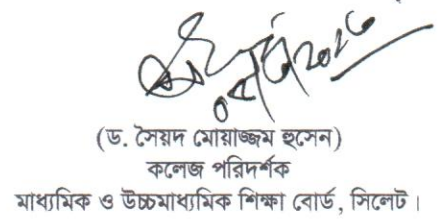 (ড. সৈয়দ মোয়াজ্জম হুসেন)
কলেজ পরিদর্শক
মাধ্যমিক ও উচ্চমাধ্যমিক শিক্ষা বোর্ড, সিলেট।